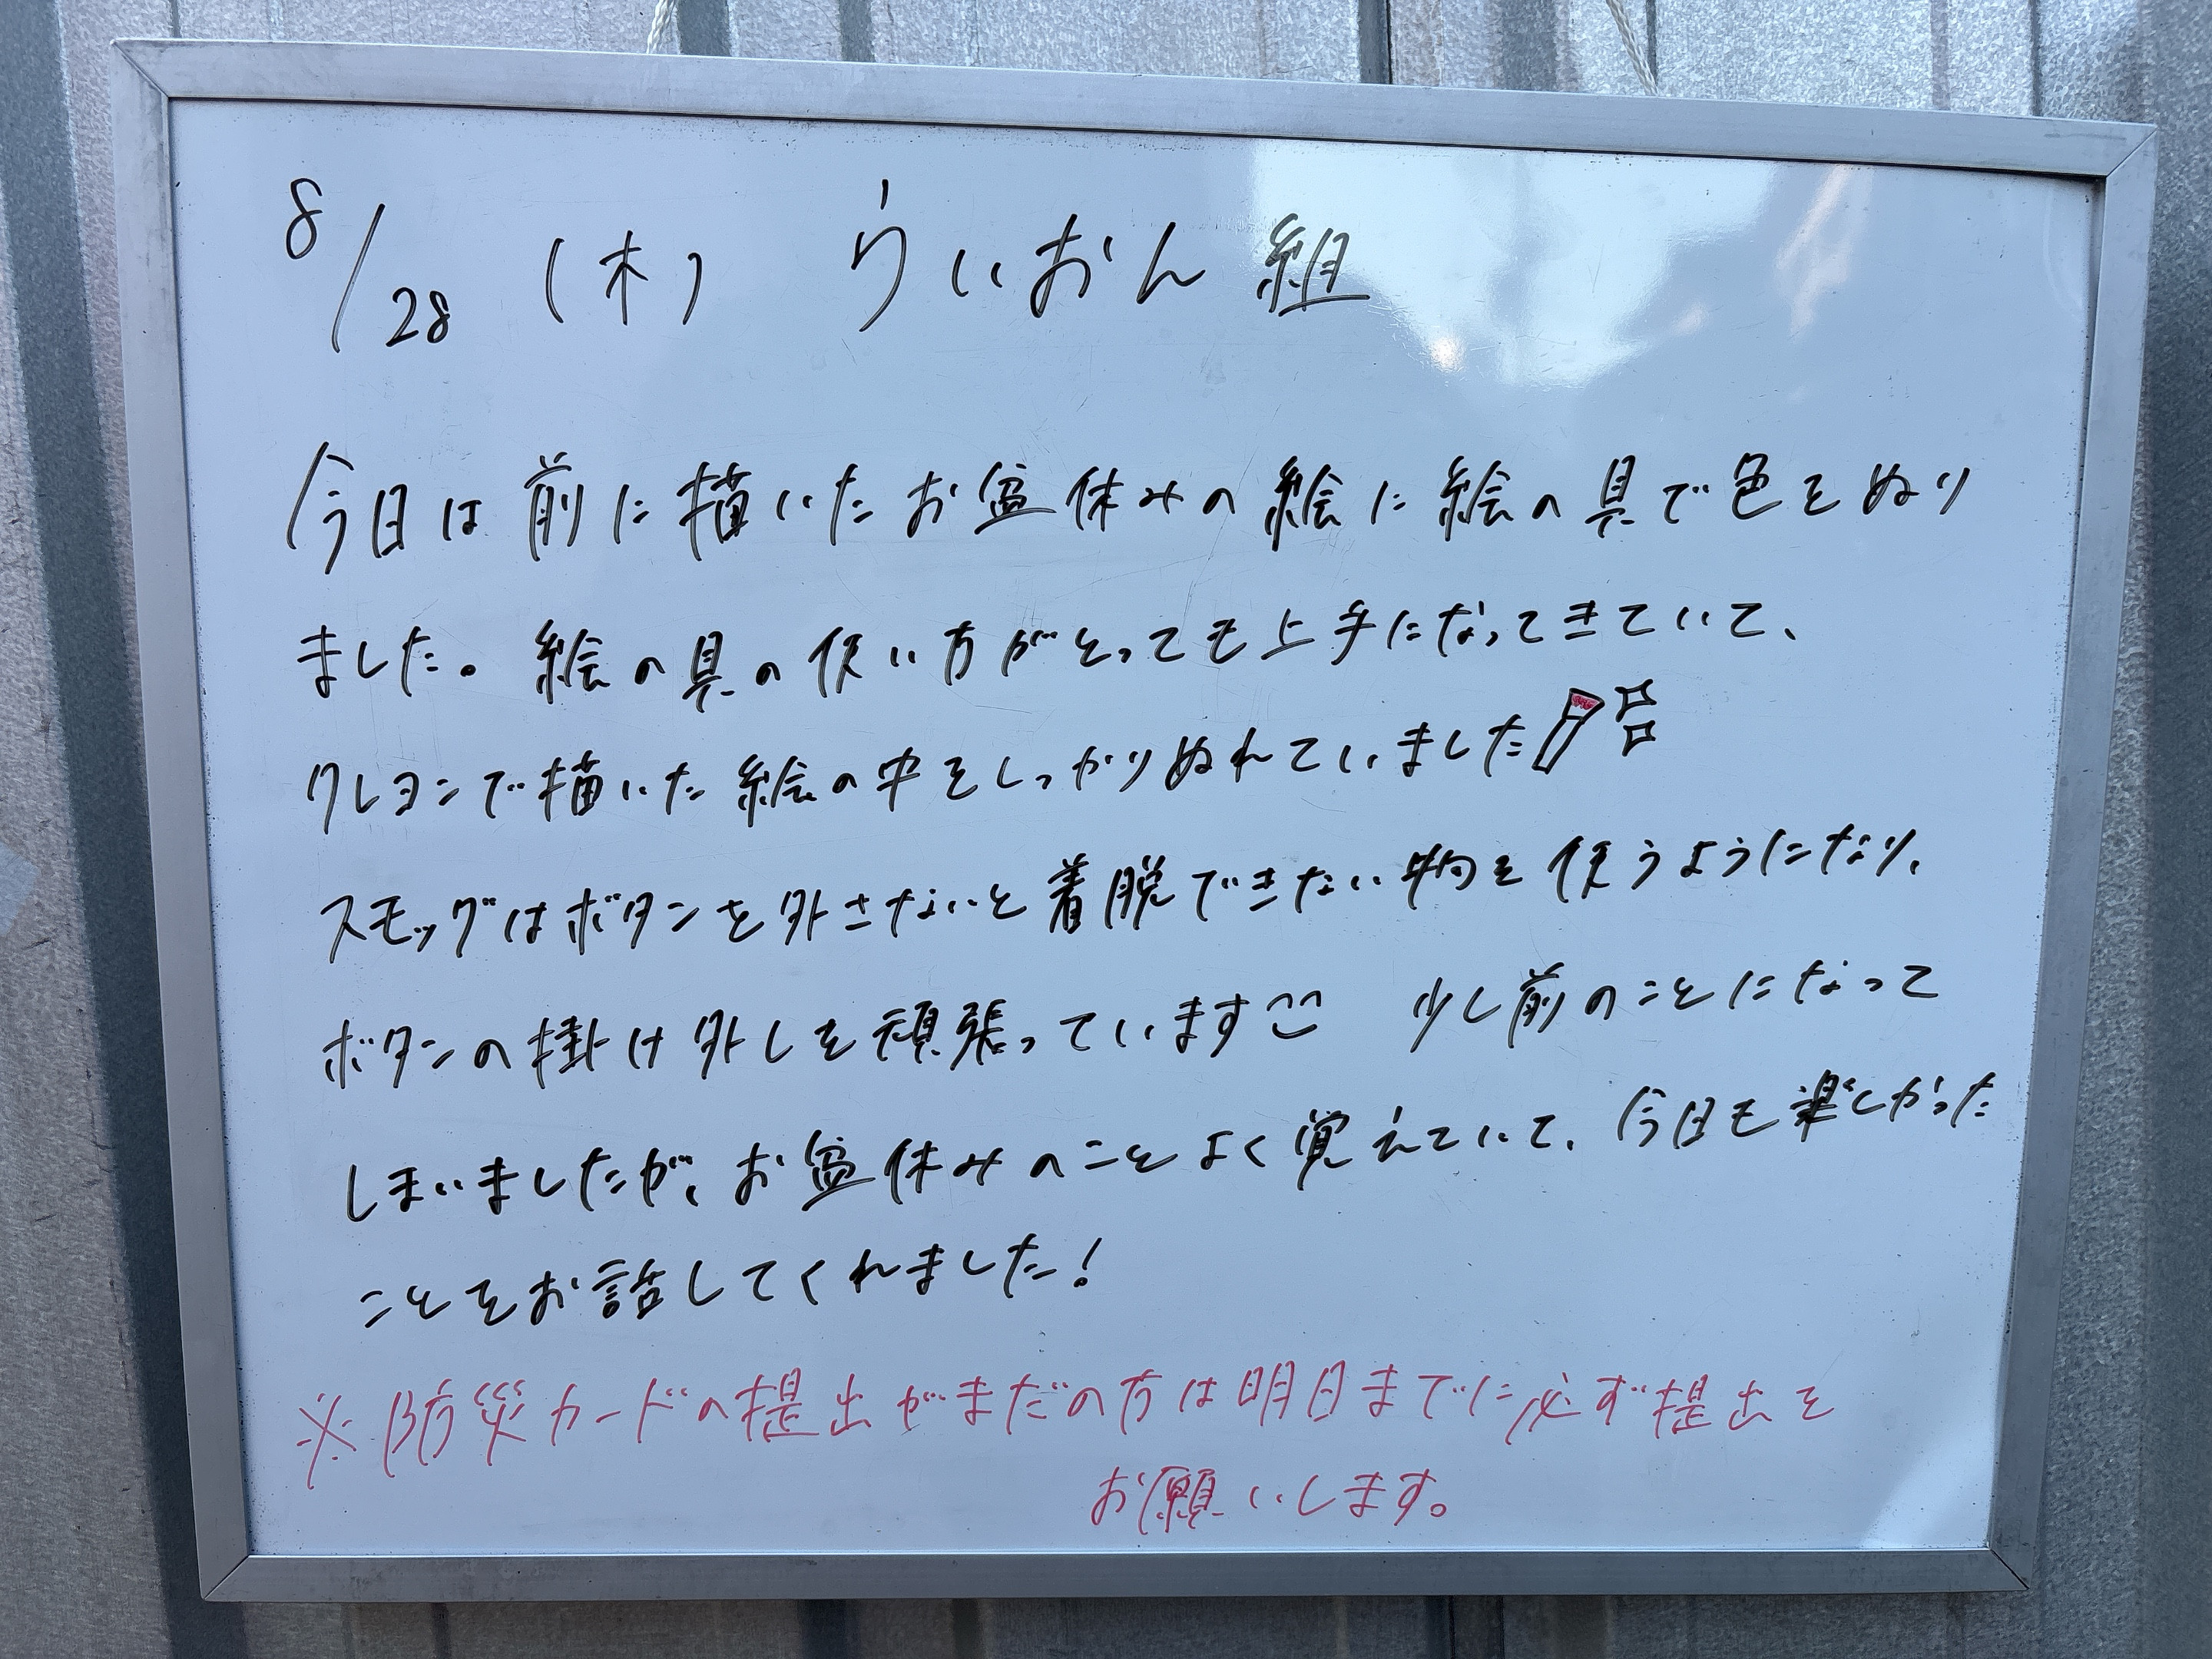 8/28 (木) らいおん組
今日は前に描いたお盆休みの絵に絵の具で色をぬり
ました。絵の具の使い方がとっても上手になってきていて、
クレヨンで描いた絵の中をしっかりぬれていました
スモッグはボタンを外さないと着脱できない物を使うようになり、
ボタンの掛け外しを頑張っています 少し前のことになって
しまいましたが、お盆休みのことをよく覚えていて、今日も楽しかった
ことをお話してくれました!
※防災カードの提出がまだの方は明日までに必ず提出を
お願いします。